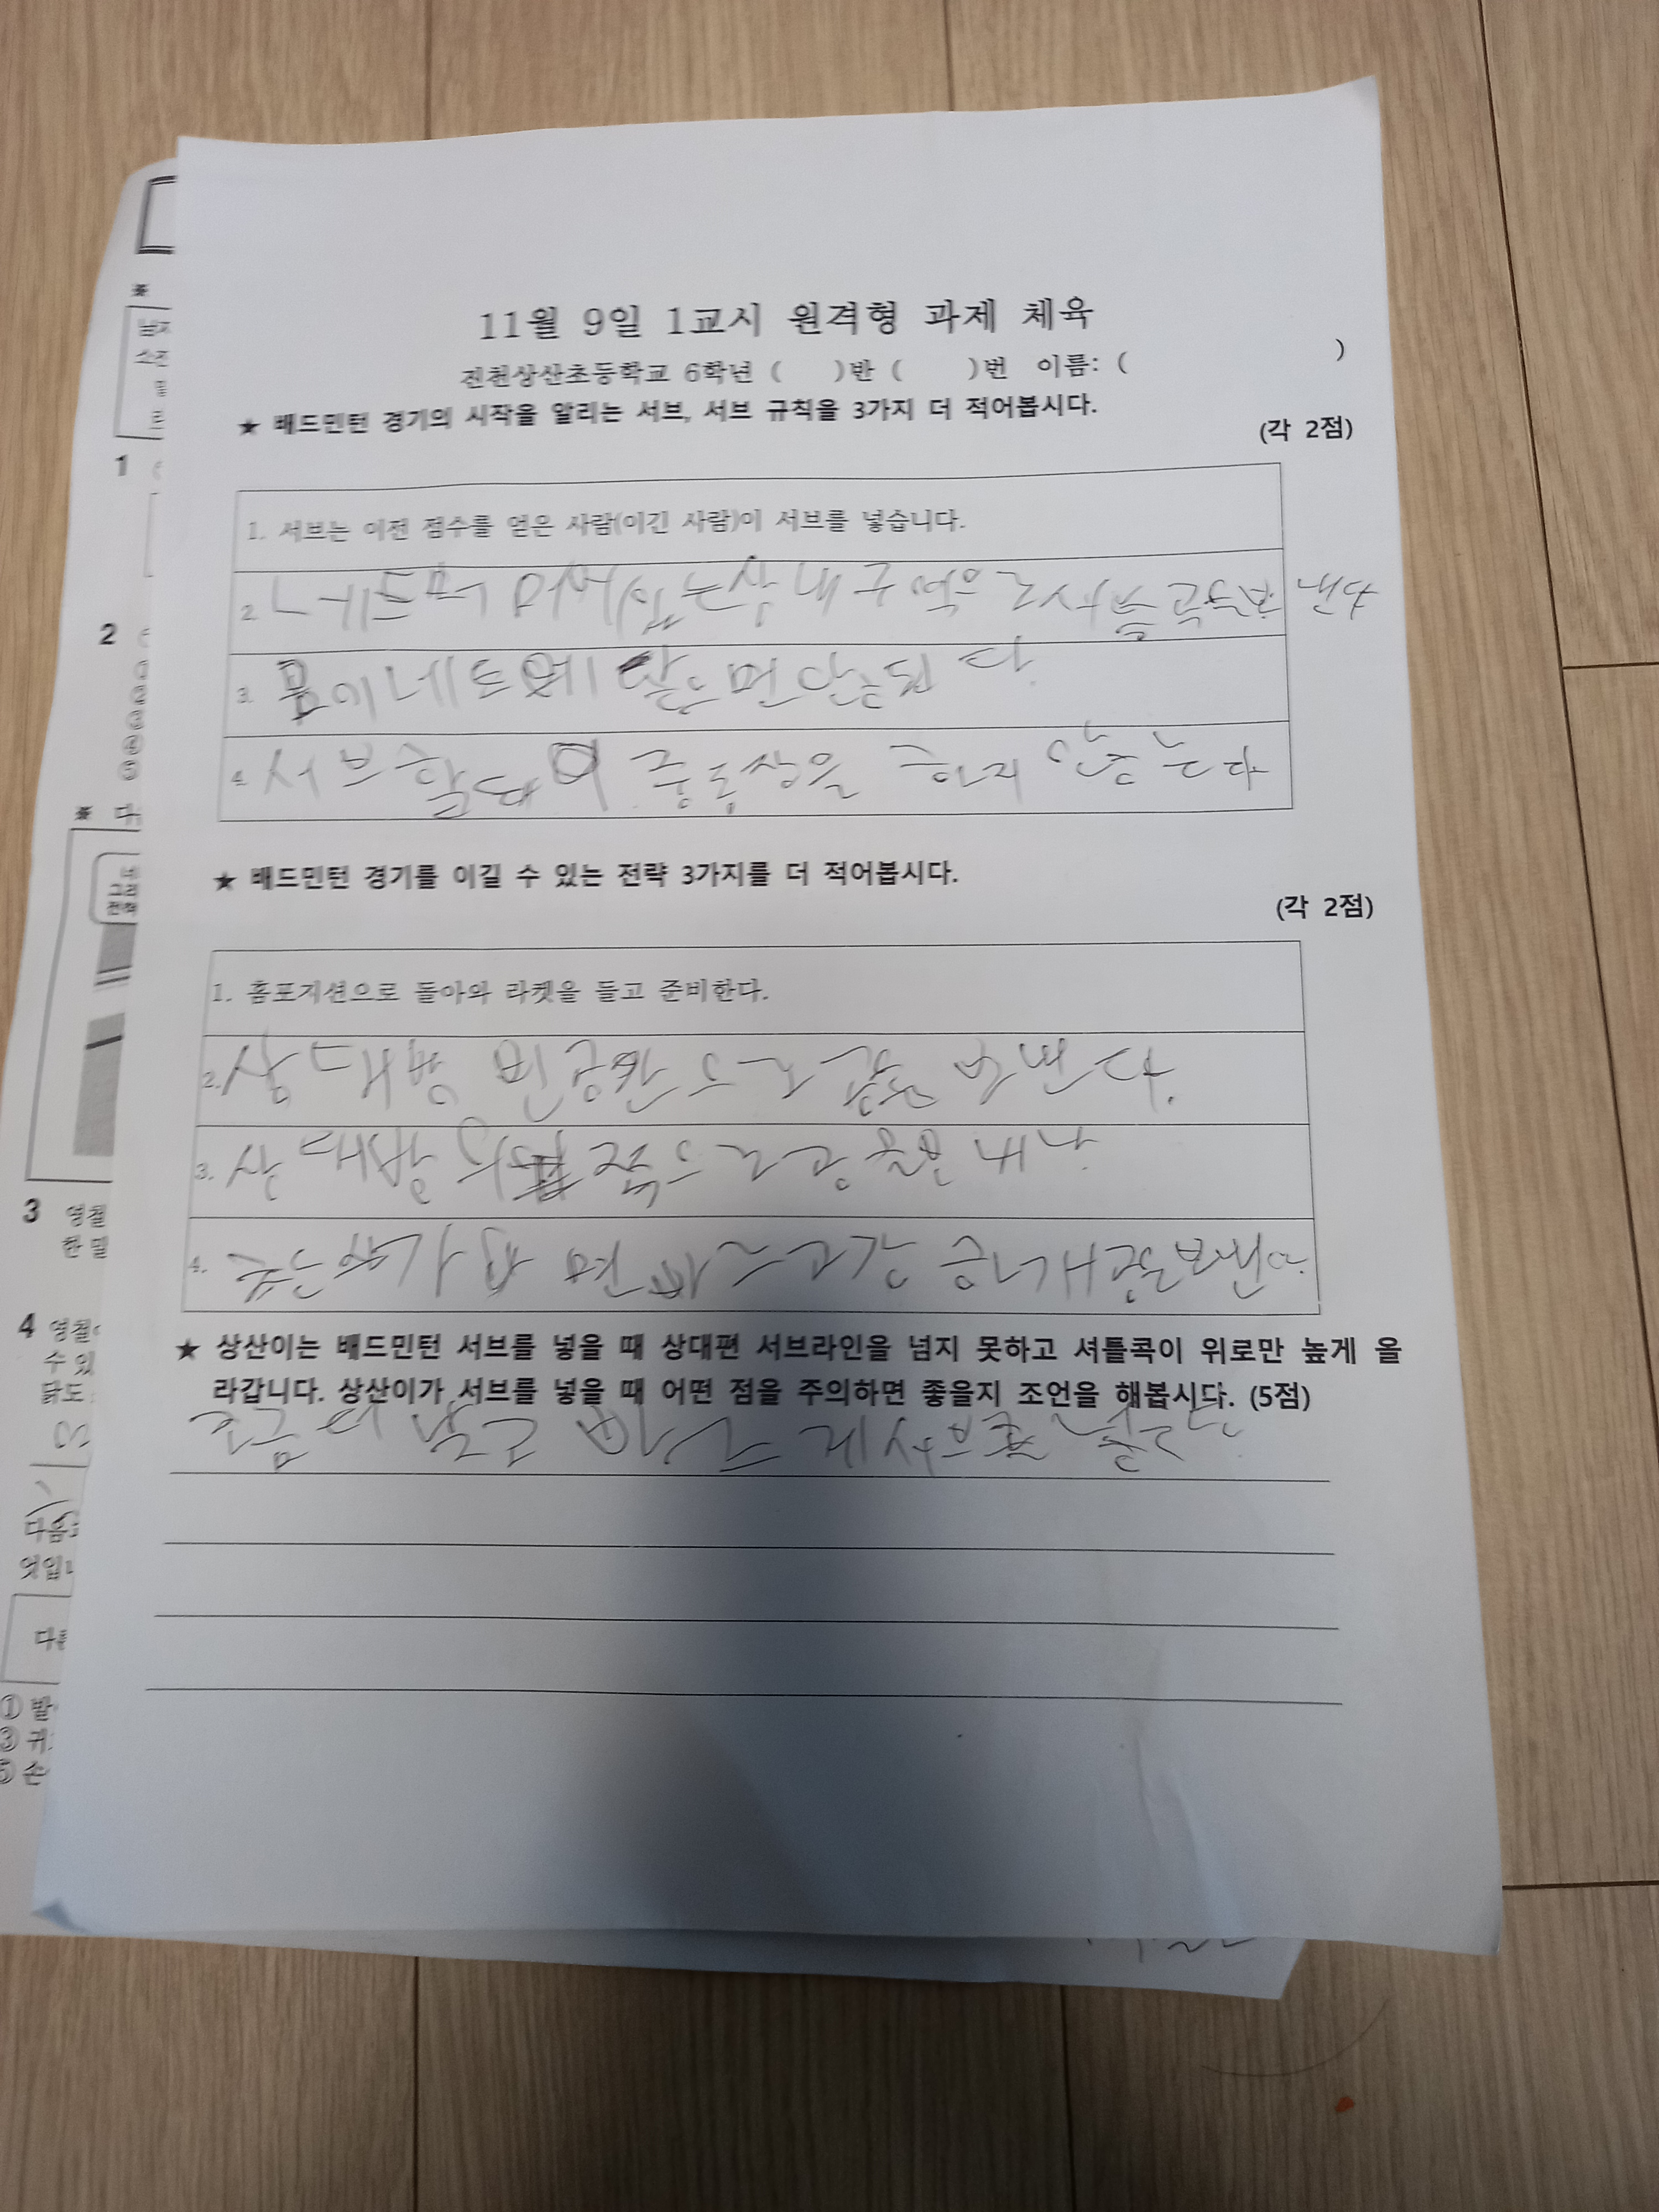 11월 9일 1교시 원격형 과제 체육
진천상산초등학교 6학년 ( )반 ( )번 이름: ( )
★ 배드민턴 경기의 시작을 알리는 서브, 서브 규칙을 3가지 더 적어봅시다.
(각 2점)
1. 서브는 이전 점수를 얻은 사람(이긴 사람)이 서브를 넣습니다.
2. 네트 너머 있는 상대 구역으로 보낸다
3. 공이 네트에 닿으면 안된다.
4. 서브할때 이중동작을 하지 않는다
★ 배드민턴 경기를 이길 수 있는 전략 3가지를 더 적어봅시다.
(각 2점)
1. 홈포지션으로 돌아와 라켓을 들고 준비한다.
2. 상대방 빈공간으로 공을 보낸다.
3. 상대방 쪽으로 공을 보내
4. 면 빠르고 강하게 공을 보낸다.
★ 상산이는 배드민턴 서브를 넣을 때 상대편 서브라인을 넘지 못하고 셔틀콕이 위로만 높게 올
라갑니다. 상산이가 서브를 넣을 때 어떤 점을 주의하면 좋을지 조언을 해봅시다. (5점)
조금 더 낮고 빠르게 서브를 넣는다.
1
2
3 영철
한 밑
4 영철
수 있
닭도
다음
엇입니
① 발
③ 귀
⑤ 손